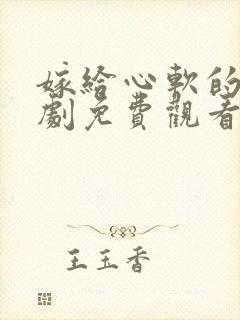 嫁給心軟的
劇免費觀看
王玉香